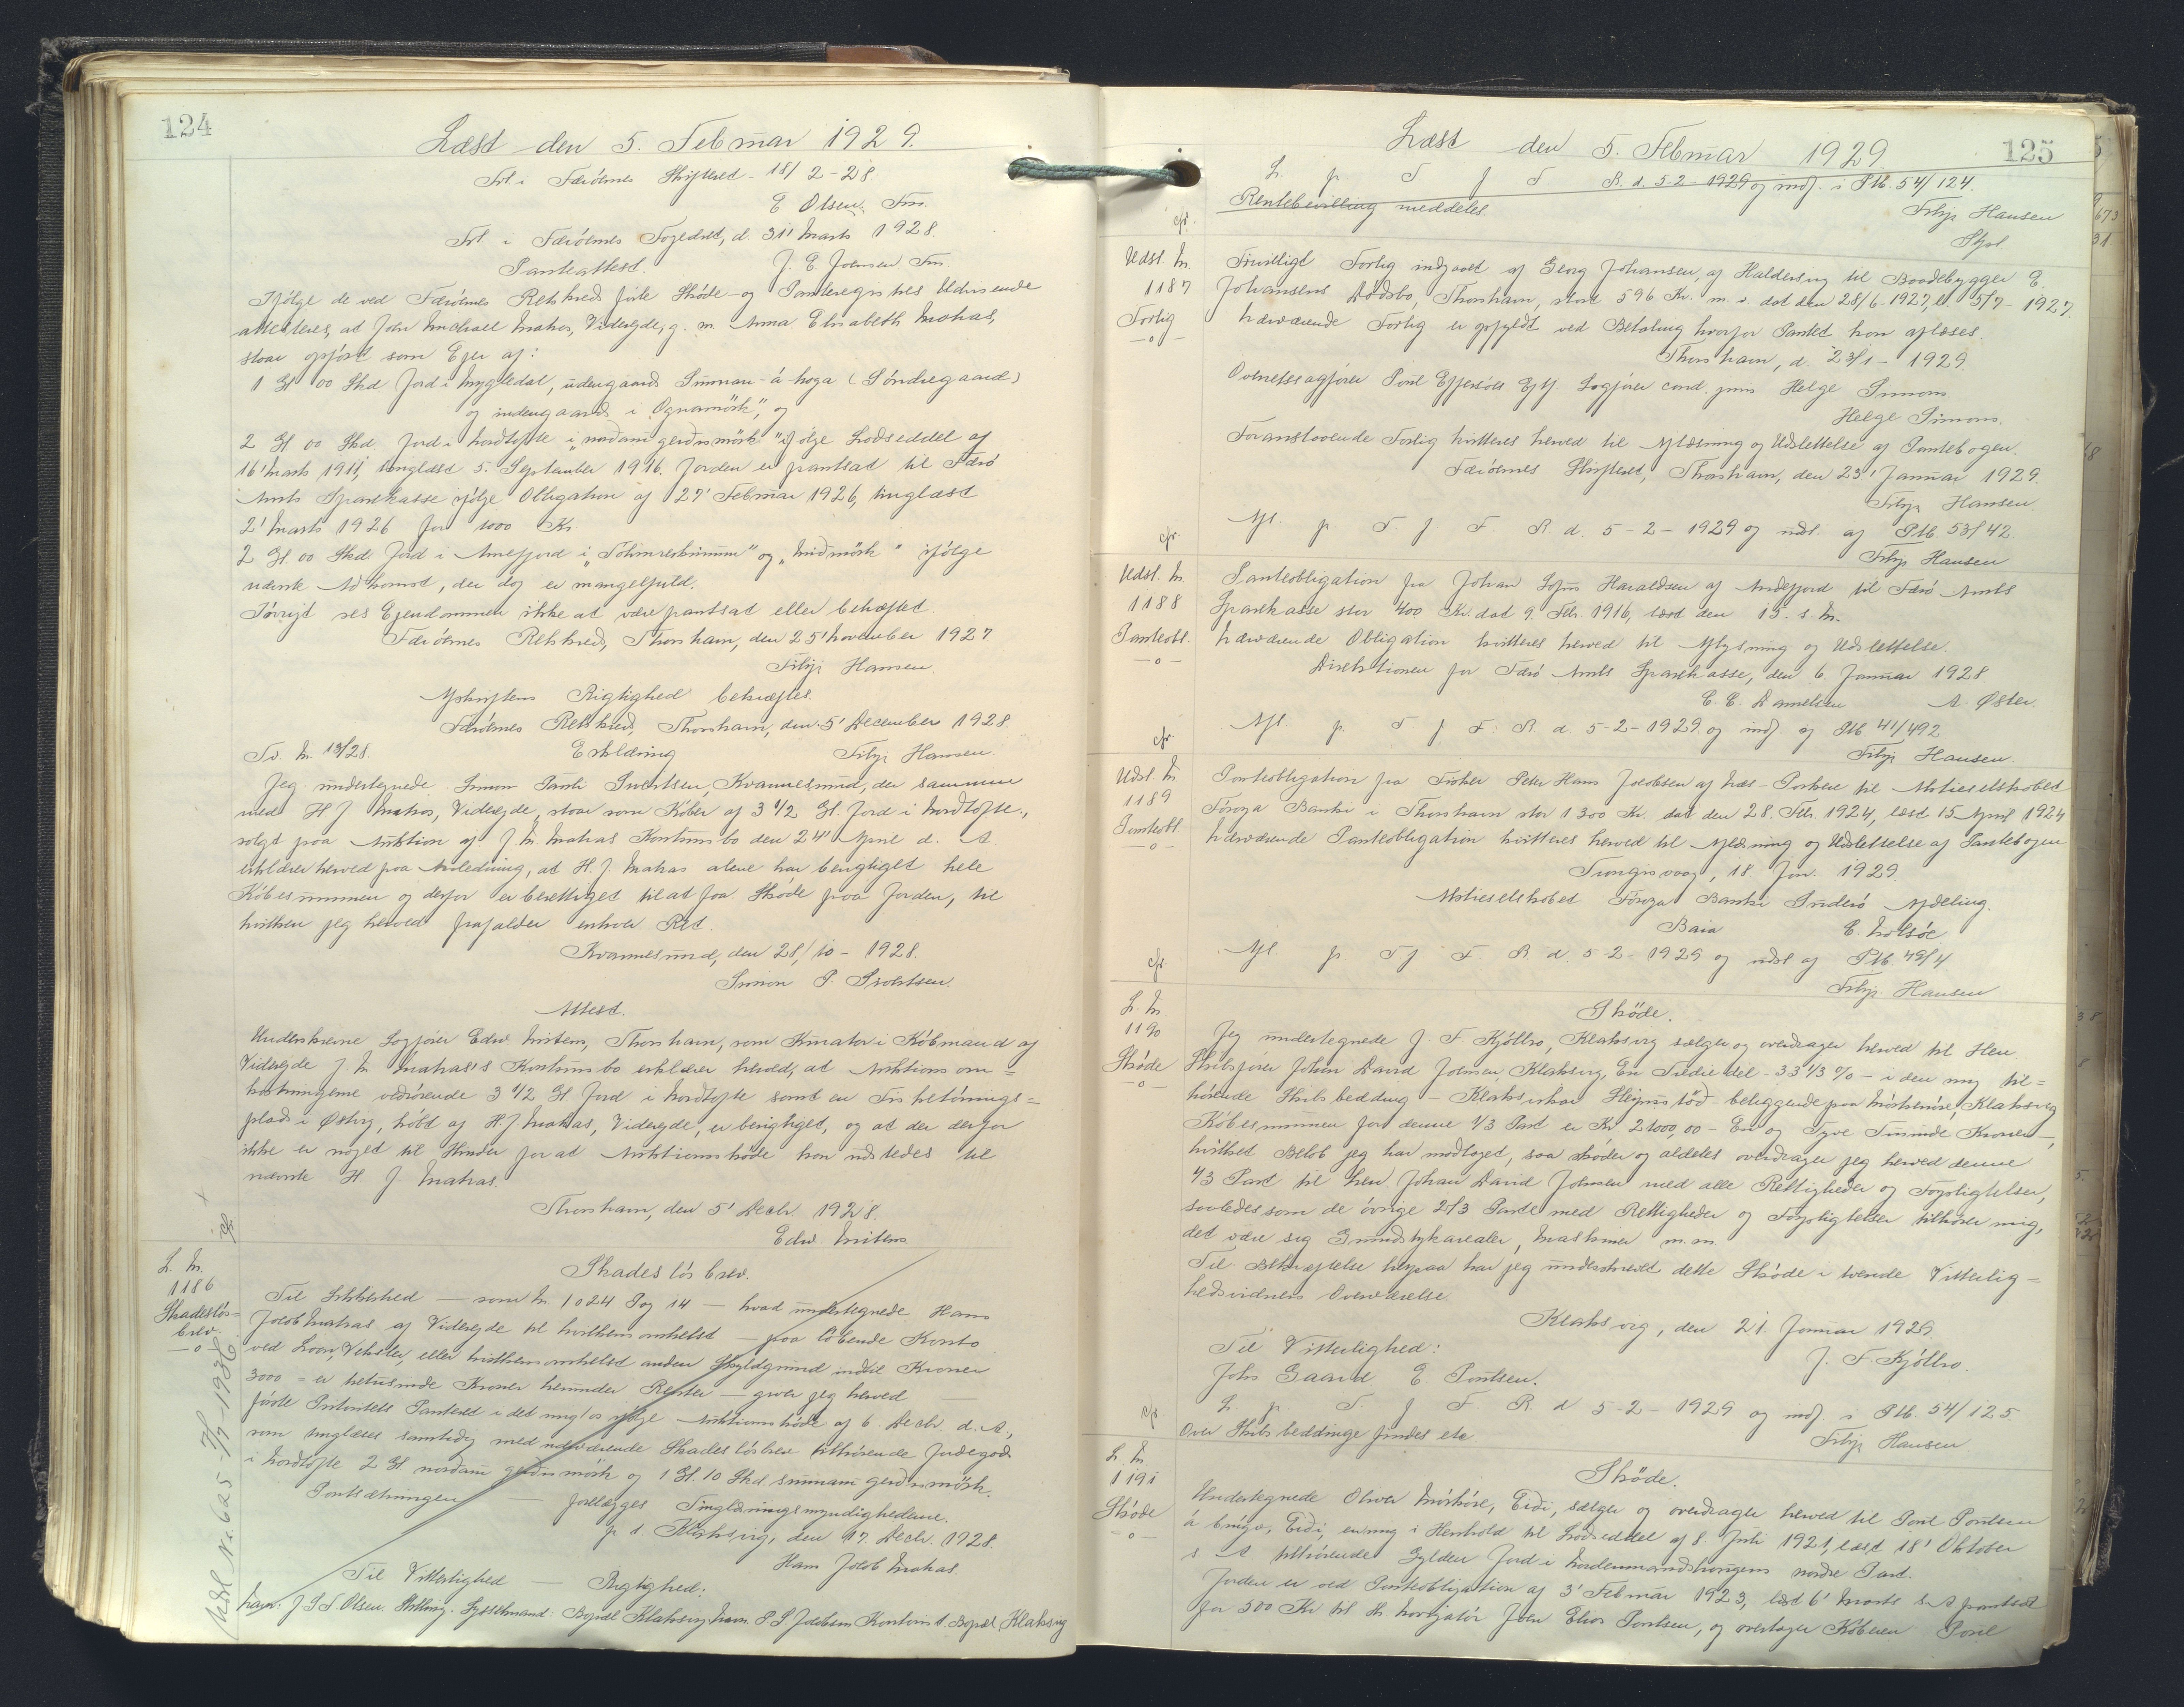 124
Læst den 5. Februar 1929.
Frt. i Færöernes Skifteret 18/2-28
E Olsen, Fm.
Frt. i Færöernes Fogedret, d. 31' Marts 1928.
J. E. Joensen Fm.
Panteattest.
Ifölge de ved Færöernes Retskreds förte Skøde- og Panteregistres Udvisende
attesteres, at John Michael Matras, Viderejde, g. m. Anna Elisabeth Matras,
staar opfört som Ejer af:
1 Gl 00 Skd Jord i Mygledal, udengaards Sunnan-á-haga (Söndregaard)
og indengaards i Ognamörk", og
2 Gl 00 Skd Jord i Nordtofte i "nordari gerdismörk" ifölge Lodseddel af
16' Marts 1911, tinglæst 5. September 1916. Jorden er pantsat til Færö
Amts Sparekasse ifölge Obligation af 27' Februar 1926, tinglæst
2' Marts 1926 for 1000 Kr.
2 Gl. 00 Skd Jord i Arnefjord i og "Midmörk" ifölge
nævnte Adkomst, der dog er mangelfuld.
Iövrigt ses Ejendommen ikke at være pantsat eller behæftet.
Færöernes Retskreds, Thorshavn, den 25' November 1927
Filip Hansen.
Afskriftens Rigtighed bekræftes.
Færöernes Retskreds, Thorshavn, den 5' December 1928.
Filip Hansen
Erklæring
Jeg undertegnede Simon Pauli Sivertsen, Kvannesund, der sammen
med H J Matras, Viderejde, staar som Köber af 3 1/2 Gl. Jord i Nordtofte,
solgt paa Auktion af J. M. Matras Konkursbo den 24' April d. A
erklærer herved paa Anledning, at H. J. Matras alene har berigtiget hele
Købesummen og derfor er berettiget til at faa Skøde paa Jorden, til
hvilken jeg herved frafalder enhver Ret.
Kvannesund, den 28/10-1928.
Simon P. Sivertsen.
Attest.
Underskrevne Sagförer Edw. Mitens, Thorshavn, som Kurator i Köbmand af
Viderejde J. M. Matras's Konkursbo erklærer herved, at Auktionsom=
kostningerne vedrörende 3 1/2 Gl Jord i Nordtofte samt en Fisketörrings=
plads i Østvig, köbt af H. J. Matras, Viderejde, er berigtiget, og at der derfor
ikke er noget til Hinder for at Auktionsskøde kan udstedes til
nævnte H J Matras.
Thorshavn, den 5' Decbr. 1928.
Edw. Mitens
L. N.
1186
Skadeslös=
brev.
-o-
Skadeslösbrev.
Til Sikkerhed — som N. 1024 Fog 14 — hvad undertegnede Hans
Jacob Matras af Viderejde til hvilkensomhelst — paa löbende Konto
ved Laan, Veksler, eller hvilkensomhelst anden Skyldgrund indtil Kroner
3000 = er tretusinde Kroner herunder Renter — giver jeg herved —
förste Prioritets Panteret i det mig ifölge Auktionsskøde af 6. Decbr. d. A.,
som tinglæses samtidig med nærværende Skadeslösbrev tilhörende Jordegods
i Nordtofte 2 Gl nordari gerdismörk og 1 Gl. 10 Skd. sunnari gerdismörk.
Pantsætningen — forelægges Tinglæsningsmyndighederne.
p. t. Klaksvig, den 17. Decbr. 1928.
Hans Jacob Matras.
Til Vitterlighed — Rigtighed:
Navn: J S S Olsen. Stilling: Sysselmand: Bopæl Klaksvig. Navn. P. S Jacobsen Kontorist. Bopæl, Klaksvig
Udsl N. 625 - 1936
125
Læst den 5. Februar 1929
L. p. T. f F. R. d. 5-2-1929 og indf. i Ptb. 54/124.
Rentebevilling meddeles.
Filip Hansen
Udsl. N.
1187
Forlig
-o-
Frivilligt Forlig indgaaet af Georg Johansen, af Haldersvig til Baadebygger E.
Johansens Dödsbo, Thorshavn, stort 596 Kr. m. v. dat den 28/6-1927, l. 5/7-1927.
Nærværende Forlig er opfyldt ved Betaling hvorfor Pantet kan aflæses.
Thorshavn, d. 23/1-1929.
Overretssagförer Poul Effersöes Eftf. Sagförer cand. juris Helge Simons
Helge Simons.
Foranstaaende Forlig kvitteres herved til Aflæsning og Udslettelse af Pantebogen.
Færöernes Skifteret, Thorshavn, den 23' Januar 1929.
Filip Hansen.
Afl. p. T. f. F. R. d. 5-2-1929 og udsl. af Ptb. 53/42.
Filip Hansen
Udsl. N.
1188
Panteobl.
-o-
Panteobligation fra Johan Sofus Haraldsen af Andefjord til Færö Amts
Sparekasse stor 400 Kr. dat 9. Febr. 1916, læst den 15. s. M.
Nærværende Obligation kvitteres herved til Aflysning og Udslettelse.
Direktionen for Færö Amts Sparekasse, den 6. Januar 1928
C. C. Danielsen A. Øster.
Afl. p. T. f F. R. d. 5-2-1929 og indf. og Ptb. 41/492
Filip Hansen.
Udsl. N.
1189
Panteobl
-o-
Panteobligation fra Fisker Peter Hans Jacobsen af Næs-Porkere til Aktieselskabet
Föroya Banki i Thorshavn stor 1300 Kr. dat den 28. Febr. 1924, læst 15 April 1924
Nærværende Panteobligation kvitteres herved til Aflæsning og Udslettelse af Pantebogen
Trongisvaag, 18. Jan. 1929.
Aktieselskabet Föroya Banki Suderö Afdeling.
E. Holsöe
Afl. p. T f F. R. d. 5-2-1929 og udsl af Ptb. 49/4
Filip Hansen
L. N.
1190
Skøde
-o-
Skøde.
Jeg undertegnede J. F Kjölbro, Klaksvig sælger og overdrager herved til Herr.
Skibsförer Johan David Joensen, Klaksvig, En Trediedel - 33 1/3 % - i den mig til=
hörende Skibsbedding - Klaksvikar Sleipistöd - beliggende paa Klaksvig
Købesummen for denne 1/3 Part er Kr. 21000,00 - En og Tyve Tusinde Kroner -,
hvilket Beløb jeg har modtaget, saa skøder og aldeles overdrager jeg herved denne
1/3 Part til Herr. Johan David Joensen med alle Rettigheder og Forpligtelser,
saaledes som de övrige 2/3 Parte med Rettigheder og Forpligtelser tilhörer mig,
det være sig Grundstykarealer, Maskiner m.m.
Til Bekræftelse herpaa har jeg underskrevet dette Skøde i tvende Vitterlig=
hedsvidners Overværelse.
Klaksvig, den 21. Januar 1929.
J. F. Kjölbro.
Til Vitterlighed:
John Gaard E. Poulsen.
L. p. T. f F. R. d 5-2-1929 og indf. i Ptb. 54/125.
Over Skibsbeddinge findes ete
Filip Hansen
L. N.
1191
Skøde
-o-
Skøde.
Undertegnede Oliver Mörköre, Eidi, sælger og overdrager herved til Poul Poulsen
á Eidi, en mig i Henhold til Lodseddel af 8 Juli 1921, læst 18' Oktober
s. A tilhörende Gylden Jord i nordre Part.
Jorden er ved Panteobligation af 3' Februar 1923, læst 6' Marts s. A pantsat
for 500 Kr til Hr. Navigatör Joen Elias Poulsen, og overtager Köberen Poul